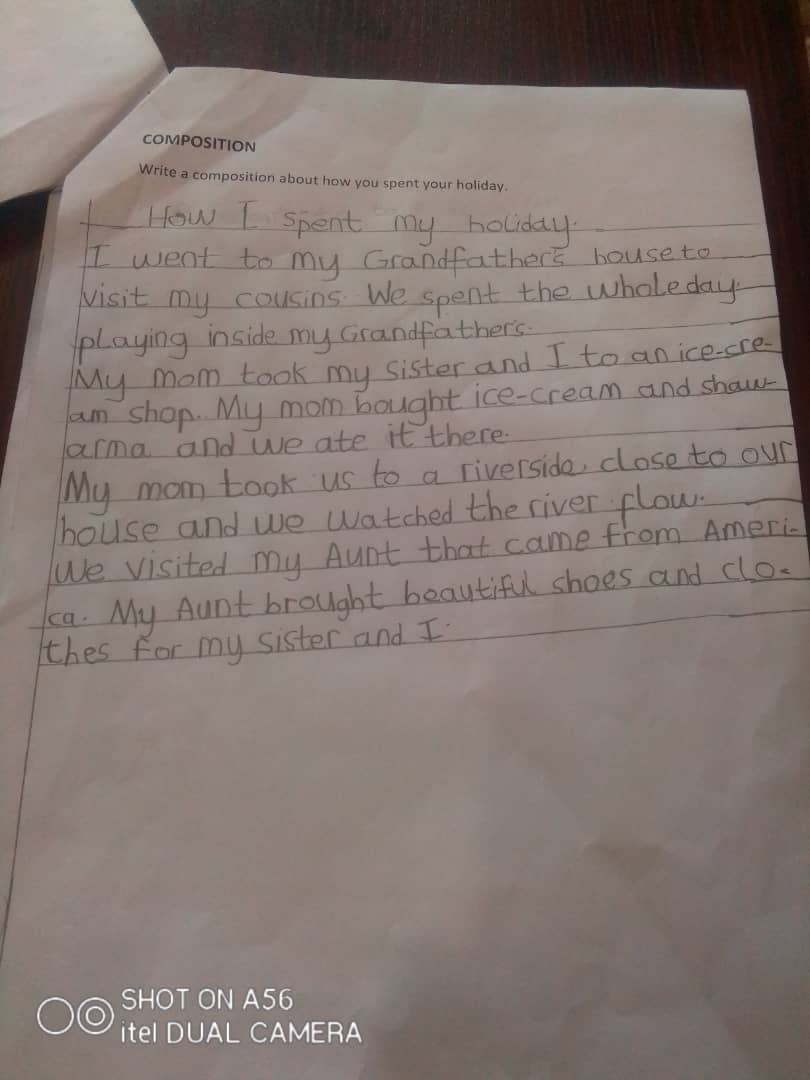 COMPOSITION
Write a composition about how you spent your holiday.
How I spent my holiday.
I went to my Grandfather's house to
visit my cousins. We spent the whole day
playing inside my Grandfather's.
My mom took my sister and I to an ice-cre-
am shop.. My mom bought ice-cream and shaw-
arma and we ate it there.
My mom took us to a riverside, close to our
house and we watched the river flow.
We visited my Aunt that came from Ameri-
ca. My Aunt brought beautiful shoes and clo-
thes for my sister and I.
SHOT ON A56
itel DUAL CAMERA